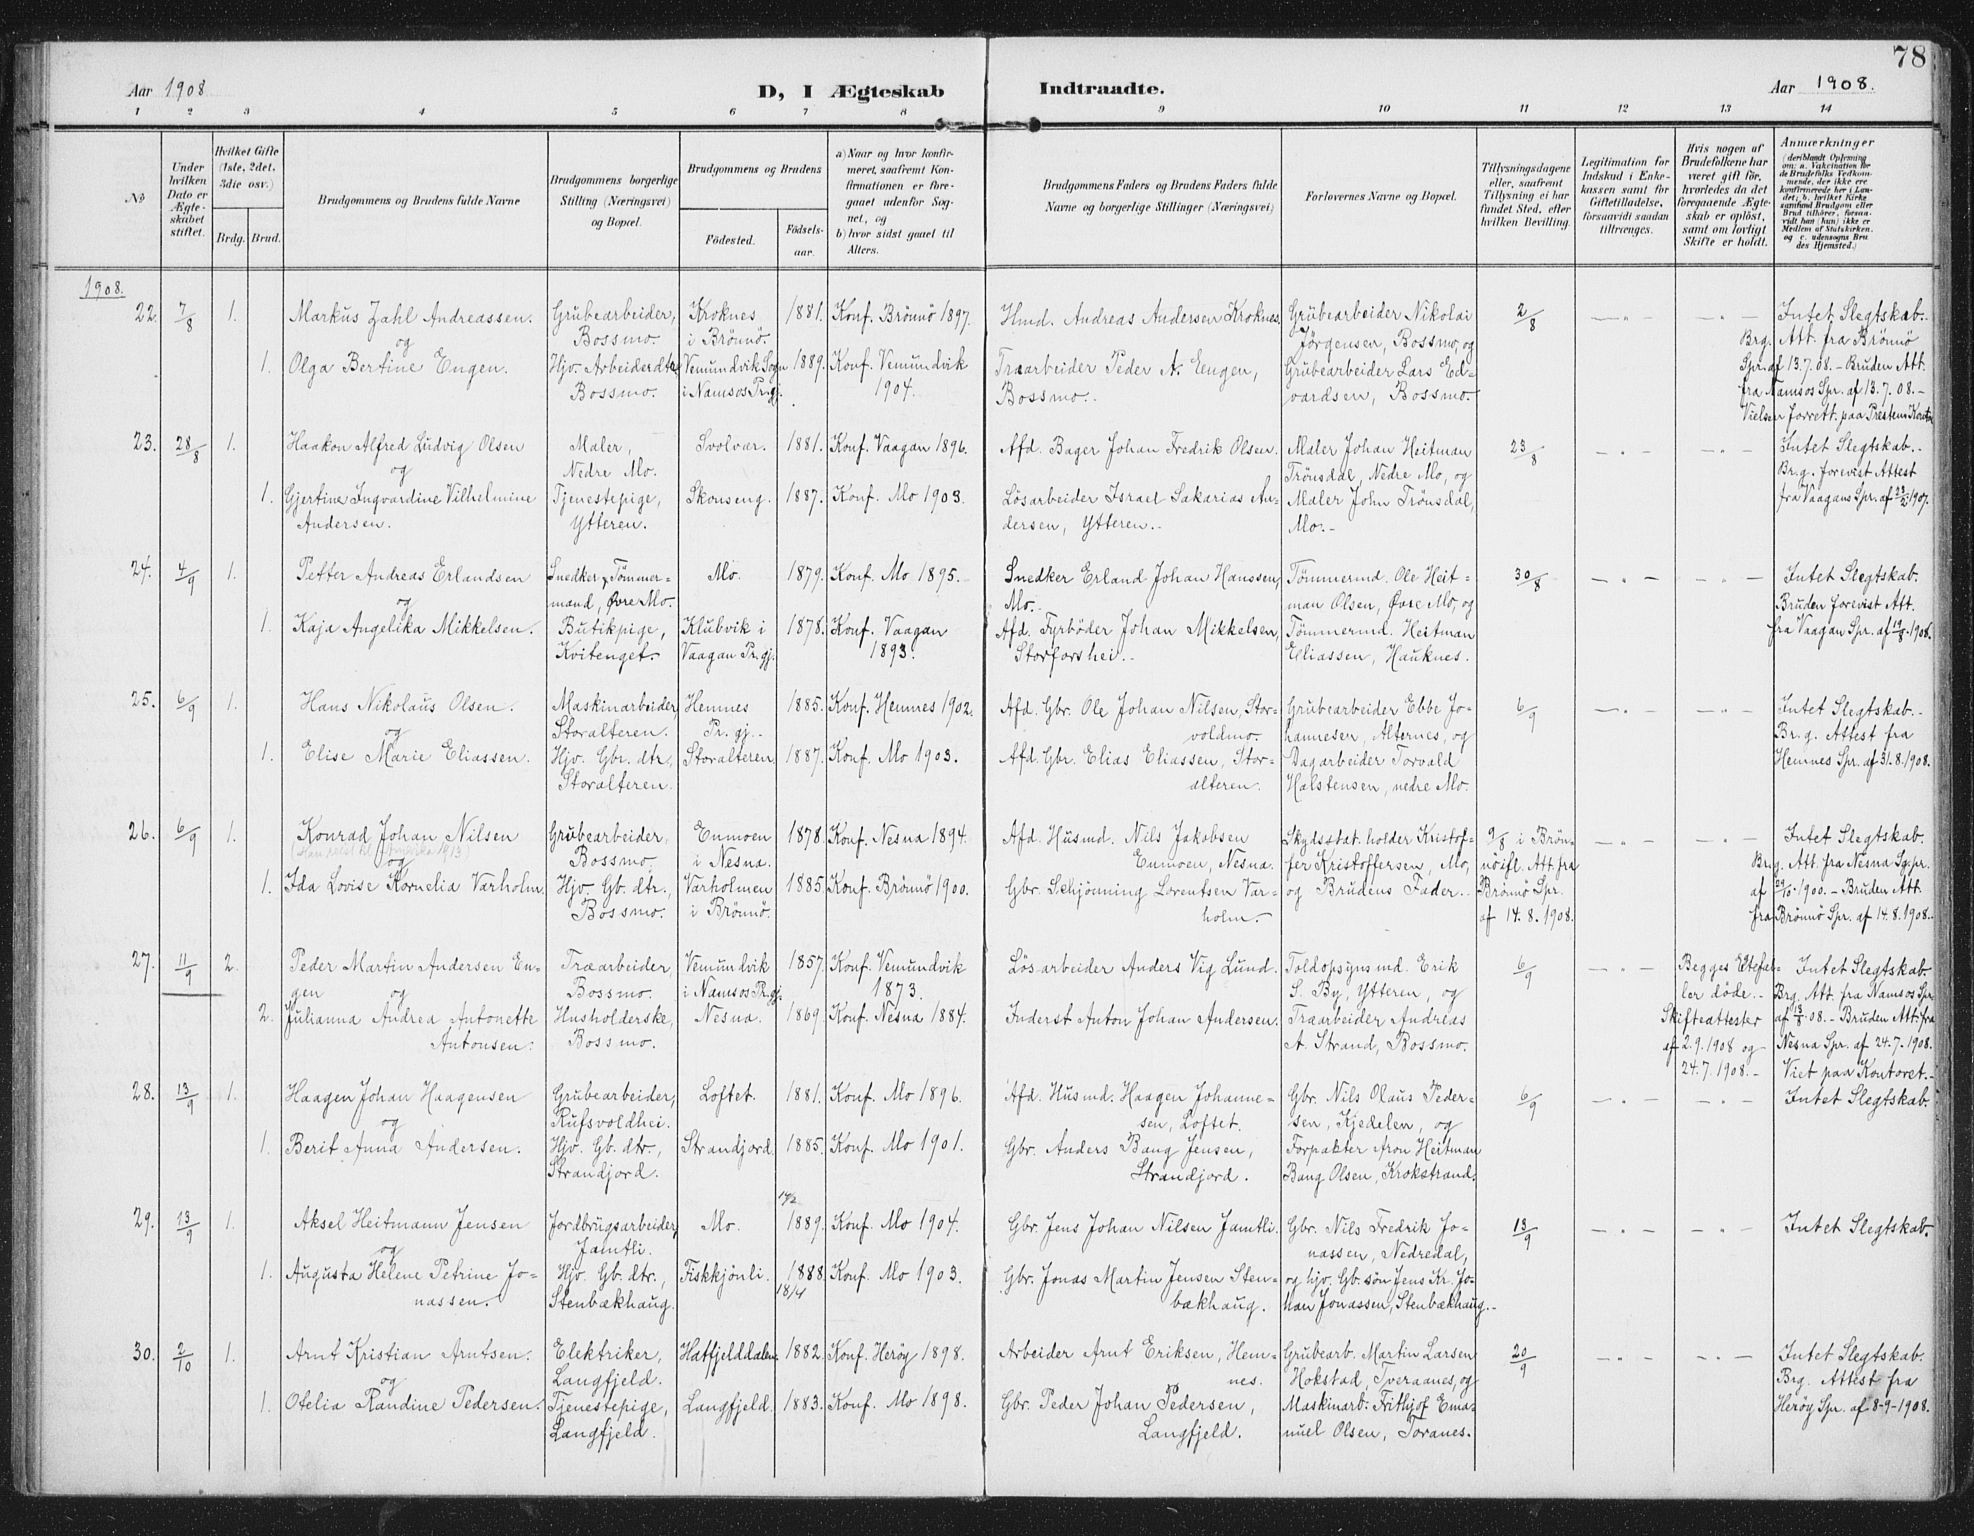 78
Aar 1908
D, I Ægteskab
Indtraadte.
Aar 1908.
1 2 3 4 5 6 7 8 9 10 11 12 13 14
No
Under hvilken Dato er Ægteskabet stiftet.
Hvilket Gifte (1ste, 2det, 3die osv.)
Brdg. Brud.
Brudgommens og Brudens fulde Navne
Brudgommens borgerlige Stilling (Næringsvei) og Bopæl.
Brudgommens og Brudens
Fødested.
Fødselsaar.
a) Naar og hvor konfirmeret, saafremt Konfirmationen er foregaaet udenfor Sognet, og
b) hvor sidst gaaet til Alters.
Brudgommens Faders og Brudens Faders fulde Navne og borgerlige Stillinger (Næringsvei)
Forlovernes Navne og Bopæl.
Tillysningsdagene eller, saafremt Tillysning ei har fundet Sted, efter hvilken Bevilling.
Legitimation for Indskud i Enkekassen samt for Giftetilladelse, forsaavidt saadan tiltrænges.
Hvis nogen af Brudefolkene har været gift før, hvorledes da det foregaaende Ægteskab er opløst, samt om lovligt Skifte er holdt.
Anmærkninger
(deriblandt Oplysning om: a. Vakcination for de Brudefolks Vedkommende, der ikke ere konfirmerede her i Landet; b. hvilket Kirkesamfund Brudgom eller Brud tilhører, forsaavidt han (hun) ikke er Medlem af Statskirken, og c. udensogns Brudes Hjemsted.)
1908.
22. 7/8 1. Markus Zahl Andreassen. Grubearbeider, Kroknes 1881. Konf. Brönnö 1897. Hmd. Andreas Andersen Kroknes. Grubearbeider Nikolai 2/8 — " — — " — Intet Slegtskab.
og Bossmo. i Brönnö. Jörgensen, Bossmo, og Brg. Att. fra Brönnö
1. Olga Bertine Engen. Hjv. Arbeiderdtr. Vemundvik Sogn 1889. Konf. Vemundvik Træarbeider Peder A. Engen, Grubearbeider Lars Ed- Spr. af 13.7.08. – Bruden Att.
Bossmo. i Namsos Pr.gj. 1904. Bossmo. vardsen, Bossmo. fra Namsos Spr. af 13.7.08. –
Vielsen forrett. paa Prestens Kontor
23. 28/8 1. Haakon Alfred Ludvig Olsen Maler, Svolvær. 1881. Konf. Vaagan 1896. Afd. Bager Johan Fredrik Olsen. Maler Johan Heitman 23/8 — " — — " — Intet Slegtskab.
og Nedre Mo. Trönsdal, Nedre Mo, og Br.g. forevist Attest
1. Gjertine Ingvardine Vilhelmine Tjenestepige, Skonseng. 1887. Konf. Mo 1903. Lösarbeider Israel Sakarias An- Maler John Trönsdal, fra Vaagans Spr. af
Andersen. Ytteren. dersen, Ytteren. Mo. 1907.
24. 4/9 1. Petter Andreas Erlandsen Snedker, Tömmer- Mo. 1879. Konf. Mo 1895. Snedker Erland Johan Hanssen, Tömmermd. Ole Heit- 30/8 — " — — " — Intet Slegtskab.
og mand, Övre Mo. Mo. man Olsen, Övre Mo, og Bruden forevist Att.
1. Kaja Angelika Mikkelsen. Butikpige, Klubvik i 1878. Konf. Vaagan Afd. Fyrböder Johan Mikkelsen, Tömmermd. Heitman fra Vaagan Spr. af 19/8 1908.
Kvitenget. Vaagan Pr.gj. 1893. Storforshei. Eliassen, Hauknes.
25. 6/9 1. Hans Nikolaus Olsen. Maskinarbeider, Hemnes 1885. Konf. Hemnes 1902. Afd. Gbr. Ole Johan Nilsen, Stor- Grubearbeider Ebbe Jo- 6/9 — " — — " — Intet Slegtskab.
og Storalteren. Pr.gj. voldmo. hannesen, Alternes, og Br.g. Attest fra
1. Elise Marie Eliassen. Hjv. Gbr. dtr, Storalteren. 1887. Konf. Mo 1903. Afd. Gbr. Elias Eliassen, Stor- Dagarbeider Torvald Hemnes Spr. af 31.8.1908.
Storalteren. alteren. Halstensen, nedre Mo.
26. 6/9 1. Konrad Johan Nilsen Grubearbeider, Enmoen 1878. Konf. Nesna 1894. Afd. Husmd. Nils Jakobsen Skydsstat.holder Kristof- 9/8 i Brön- — " — — " — Intet Slegtskab.
(Han reist til Amerika 1913)
og Bossmo, i Nesna. Enmoen, Nesna. fer Kristoffersen, Mo, nö ifl. Att. fra Brg. Att. fra Nesna Spr.
1. Ida Lovise Kornelia Varholm. Hjv. Gb. dtr., Varholmen 1885. Konf. Brönnö 1900. Gbr. Schjönning Lorentsen Var- og Brudens Fader. Brönnö Spr. af 1900. – Bruden Att.
Bossmo. i Brönnö. holm. af 14.8.1908. fra Brönnö Spr. af 14.8.1908.
27. 11/9 2. Peder Martin Andersen En- Træarbeider, Vemundvik 1857. Konf. Vemundvik Lösarbeider Anders Vig Lund. Toldopsynsmd. Erik 6/9 — " — Begges Ektefæl- Intet Slegtskab.
gen og Bossmo. i Namsos Pr.gj. 1873. S. By, Ytteren, og ler döde. Brg. Att. fra Namsos Spr.
2. Julianna Andrea Antonette Husholderske, Nesna. 1869. Konf. Nesna 1884. Inderst Anton Johan Andersen. Træarbeider Andreas Skifteattester af 13/8 08. – Bruden Att. fra
Antonsen. Bossmo. A. Strand, Bossmo. af 2.9.1908 og Nesna Spr. af 24.7.1908.
24.7.1908. Viet paa Kontoret.
28. 13/9 1. Haagen Johan Haagensen Grubearbeider, Loftet. 1881. Konf. Mo 1896. Afd. Husmd. Haagen Johanne- Gbr. Nils Olaus Peder- 6/9 — " — — " — Intet Slegtskab.
og Rufsvoldhei. sen, Loftet. sen, Kjedelen, og
1. Berit Anna Andersen. Hjv. Gb. dtr., Strandjord. 1885. Konf. Mo 1901. Gbr. Anders Bang Jensen, Forpakter Aron Heitman
Strandjord. Strandjord. Bang Olsen, Krokstrand.
29. 13/9 1. Aksel Heitmann Jensen Jordbrugsarbeider, Mo. 1889. Konf. Mo 1904. Gbr. Jens Johan Nilsen Jamtli. Gbr. Nils Fredrik Jo- 13/9 — " — — " — Intet Slegtskab.
og Jamtli. nassen, Nedredal,
1. Augusta Helene Petrine Jo- Hjv. Gb. dtr., Fiskkjönli. 1888. Konf. Mo 1903. Gbr. Jonas Martin Jensen Sten- og hjv. Gb. sön Jens Kr. Jo-
nassen. Stenbækhaug. 18/4 bækhaug. han Jonassen, Stenbækhaug.
30. 2/10 1. Arnt Kristian Arntsen. Elektriker, Hatfjelddalen. 1882. Konf. Heröy 1898. Arbeider Arnt Eriksen, Hem- Grubearb. Martin Larsen 20/9 — " — — " — Intet Slegtskab.
og Langfjeld. nes. Hokstad, Tveraanes, og Brg. Attest fra
1. Otelia Randine Pedersen. Tjenestepige, Langfjeld. 1883. Konf. Mo 1898. Gbr. Peder Johan Pedersen, Maskinarb. Frithjof Ema- Heröy Spr. af 8-9-1908.
Langfjeld. Langfjeld. nuel Olsen, Toranes.